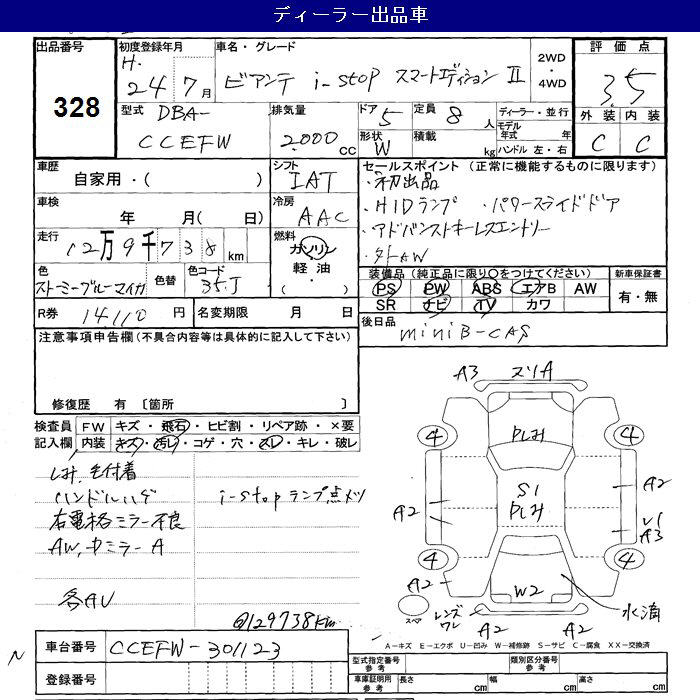 ディーラー出品車
出品番号
328
初度登録年月
H.
24年 7月
車名・グレード
ビアンテ i-stop スマートエディション II
2WD
・
4WD
評価点
3.5
外装 内装
C C
型式 DBA-
CCEFW
排気量
2000 cc
ドア 5
形状 W
定員 8 人
積載 kg
ディーラー・並行
モデル
年式 年
ハンドル 左・右
車歴
自家用・( )
シフト
IAT
セールスポイント (正常に機能するものに限ります)
・初出品
・HIDランプ ・パワースライドドア
・アドバンストキーレスエントリー
・外AW
車検
年 月( 日)
冷房
AAC
走行
12万9千738 km
燃料
ガソリン
軽油・
( )
色
ストーミーブルーマイカ
色替
色コード
35J
装備品(純正品に限り○をつけてください)
PS PW ABS エアB AW
SR ナビ TV カワ
新車保証書
有・無
R券 14.110 円
名変期限 月 日
後日品
miniB-CAS
注意事項申告欄(不具合内容等は具体的に記入して下さい)
修復歴 有 〔箇所 〕
検査員 FW キズ・飛石・ヒビ割・リペア跡・×要
記入欄 内装 キズ・汚レ・コゲ・穴・スレ・キレ・破レ
シミ、毛付着
ハンドルハゲ
i-stopランプ点灯
右電格ミラー不良
AW,ドミラーA
各AU
@129738km
A3 スリA
4 PLみ 4
S1
PLみ
A2
A2
レ1
A3
4 4
A2
W2
水滴
スペア
レンズワレ
A2 A2
A-キズ E-エクボ U-凹み W-補修跡 S-サビ C-腐食 XX-交換済
N
車台番号 CCEFW-301123
登録番号
型式指定番号
参考
類別区分番号
参考
車庫証明用
参考
長さ cm 幅 cm 高さ cm